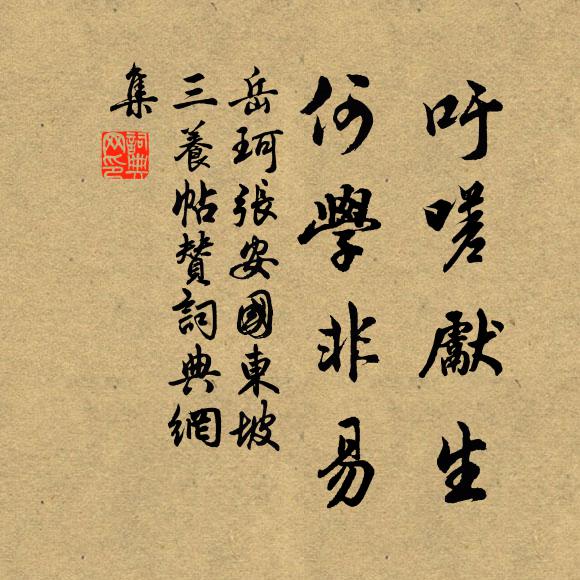 吁嗟獻生
何學非易
岳珂張安國東坡
三養帖贊詞典網
集
詞典
网印